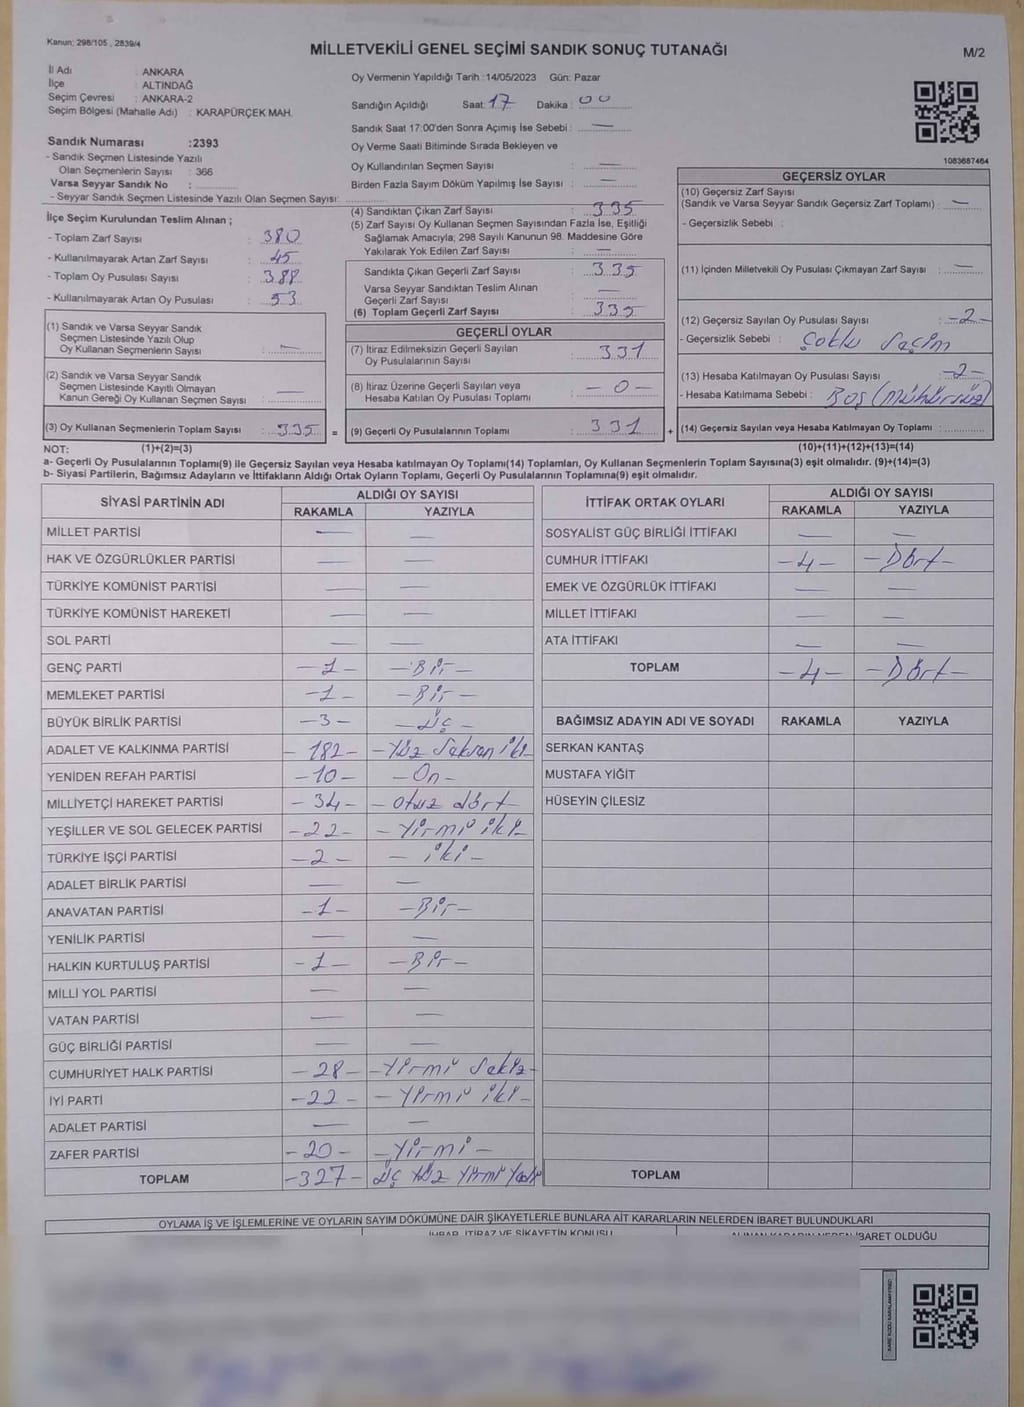 Kanun; 298/105 , 2839/4
MİLLETVEKİLİ GENEL SEÇİMİ SANDIK SONUÇ TUTANAĞI
M/2
İl Adı : ANKARA
İlçe : ALTINDAĞ
Seçim Çevresi : ANKARA-2
Seçim Bölgesi (Mahalle Adı) : KARAPÜRÇEK MAH.
Sandık Numarası :2393
- Sandık Seçmen Listesinde Yazılı
Olan Seçmenlerin Sayısı : 366
Varsa Seyyar Sandık No :
- Seyyar Sandık Seçmen Listesinde Yazılı Olan Seçmen Sayısı:
Oy Vermenin Yapıldığı Tarih :14/05/2023 Gün: Pazar
Sandığın Açıldığı Saat: 17 Dakika : 00
Sandık Saat 17:00'den Sonra Açımış İse Sebebi : —
Oy Verme Saati Bitiminde Sırada Bekleyen ve
Oy Kullandırılan Seçmen Sayısı : —
Birden Fazla Sayım Döküm Yapılmış İse Sayısı : —
1083687464
İlçe Seçim Kurulundan Teslim Alınan ;
- Toplam Zarf Sayısı : 380
- Kullanılmayarak Artan Zarf Sayısı : 45
- Toplam Oy Pusulası Sayısı : 388
- Kullanılmayarak Artan Oy Pusulası : 53
(1) Sandık ve Varsa Seyyar Sandık
Seçmen Listesinde Yazılı Olup
Oy Kullanan Seçmenlerin Sayısı : —
(2) Sandık ve Varsa Seyyar Sandık
Seçmen Listesinde Kayıtlı Olmayan
Kanun Gereği Oy Kullanan Seçmen Sayısı : —
(3) Oy Kullanan Seçmenlerin Toplam Sayısı : 335 =
(4) Sandıktan Çıkan Zarf Sayısı : 335
(5) Zarf Sayısı Oy Kullanan Seçmen Sayısından Fazla İse, Eşitliği
Sağlamak Amacıyla; 298 Sayılı Kanunun 98. Maddesine Göre
Yakılarak Yok Edilen Zarf Sayısı : —
Sandıkta Çıkan Geçerli Zarf Sayısı : 335
Varsa Seyyar Sandıktan Teslim Alınan
Geçerli Zarf Sayısı : —
(6) Toplam Geçerli Zarf Sayısı : 335
GEÇERLİ OYLAR
(7) İtiraz Edilmeksizin Geçerli Sayılan
Oy Pusulasının Sayısı : 331
(8) İtiraz Üzerine Geçerli Sayılan veya
Hesaba Katılan Oy Pusulası Toplamı : - 0 -
(9) Geçerli Oy Pusulalarının Toplamı : 331 +
GEÇERSİZ OYLAR
(10) Geçersiz Zarf Sayısı
(Sandık ve Varsa Seyyar Sandık Geçersiz Zarf Toplamı) : —
- Geçersizlik Sebebi :
(11) İçinden Milletvekili Oy Pusulası Çıkmayan Zarf Sayısı : —
(12) Geçersiz Sayılan Oy Pusulası Sayısı : -2-
- Geçersizlik Sebebi : Çoklu Seçim
(13) Hesaba Katılmayan Oy Pusulası Sayısı : -2-
- Hesaba Katılmama Sebebi : Boş (Mühürsüz)
(14) Geçersiz Sayılan veya Hesaba Katılmayan Oy Toplamı :
NOT: (1)+(2)=(3) (10)+(11)+(12)+(13)=(14)
a- Geçerli Oy Pusulalarının Toplamı(9) ile Geçersiz Sayılan veya Hesaba katılmayan Oy Toplamı(14) Toplamları, Oy Kullanan Seçmenlerin Toplam Sayısına(3) eşit olmalıdır. (9)+(14)=(3)
b- Siyasi Partilerin, Bağımsız Adayların ve İttifakların Aldığı Ortak Oyların Toplamı, Geçerli Oy Pusulalarının Toplamına(9) eşit olmalıdır.
SİYASİ PARTİNİN ADI ALDIĞI OY SAYISI
RAKAMLA YAZIYLA
MİLLET PARTİSİ — —
HAK VE ÖZGÜRLÜKLER PARTİSİ — —
TÜRKİYE KOMÜNİST PARTİSİ — —
TÜRKİYE KOMÜNİST HAREKETİ — —
SOL PARTİ — —
GENÇ PARTİ -1- -Bir-
MEMLEKET PARTİSİ -1- -Bir-
BÜYÜK BİRLİK PARTİSİ -3- -Üç-
ADALET VE KALKINMA PARTİSİ -182- -Yüz Seksen iki-
YENİDEN REFAH PARTİSİ -10- -On-
MİLLİYETÇİ HAREKET PARTİSİ -34- -otuz dört-
YEŞİLLER VE SOL GELECEK PARTİSİ -22- -Yirmi iki-
TÜRKİYE İŞÇİ PARTİSİ -2- -iki-
ADALET BİRLİK PARTİSİ — —
ANAVATAN PARTİSİ -1- -Bir-
YENİLİK PARTİSİ — —
HALKIN KURTULUŞ PARTİSİ -1- -Bir-
MİLLİ YOL PARTİSİ — —
VATAN PARTİSİ — —
GÜÇ BİRLİĞİ PARTİSİ — —
CUMHURİYET HALK PARTİSİ -28- -Yirmi Sekiz-
İYİ PARTİ -22- -Yirmi iki-
ADALET PARTİSİ — —
ZAFER PARTİSİ -20- -Yirmi-
TOPLAM -327- Üç Yüz Yirmi Yedi
İTTİFAK ORTAK OYLARI ALDIĞI OY SAYISI
RAKAMLA YAZIYLA
SOSYALİST GÜÇ BİRLİĞİ İTTİFAKI — —
CUMHUR İTTİFAKI -4- -Dört-
EMEK VE ÖZGÜRLÜK İTTİFAKI — —
MİLLET İTTİFAKI — —
ATA İTTİFAKI — —
TOPLAM -4- -Dört-
BAĞIMSIZ ADAYIN ADI VE SOYADI RAKAMLA YAZIYLA
SERKAN KANTAŞ
MUSTAFA YİĞİT
HÜSEYİN ÇİLESİZ
TOPLAM
OYLAMA İŞ VE İŞLEMLERİNE VE OYLARIN SAYIM DÖKÜMÜNE DAİR ŞİKAYETLERLE BUNLARA AİT KARARLARIN NELERDEN İBARET BULUNDUKLARI
İHBAR, İTİRAZ VE ŞİKAYETİN KONUSU
ALINAN KARARIN NEDEN İBARET OLDUĞU